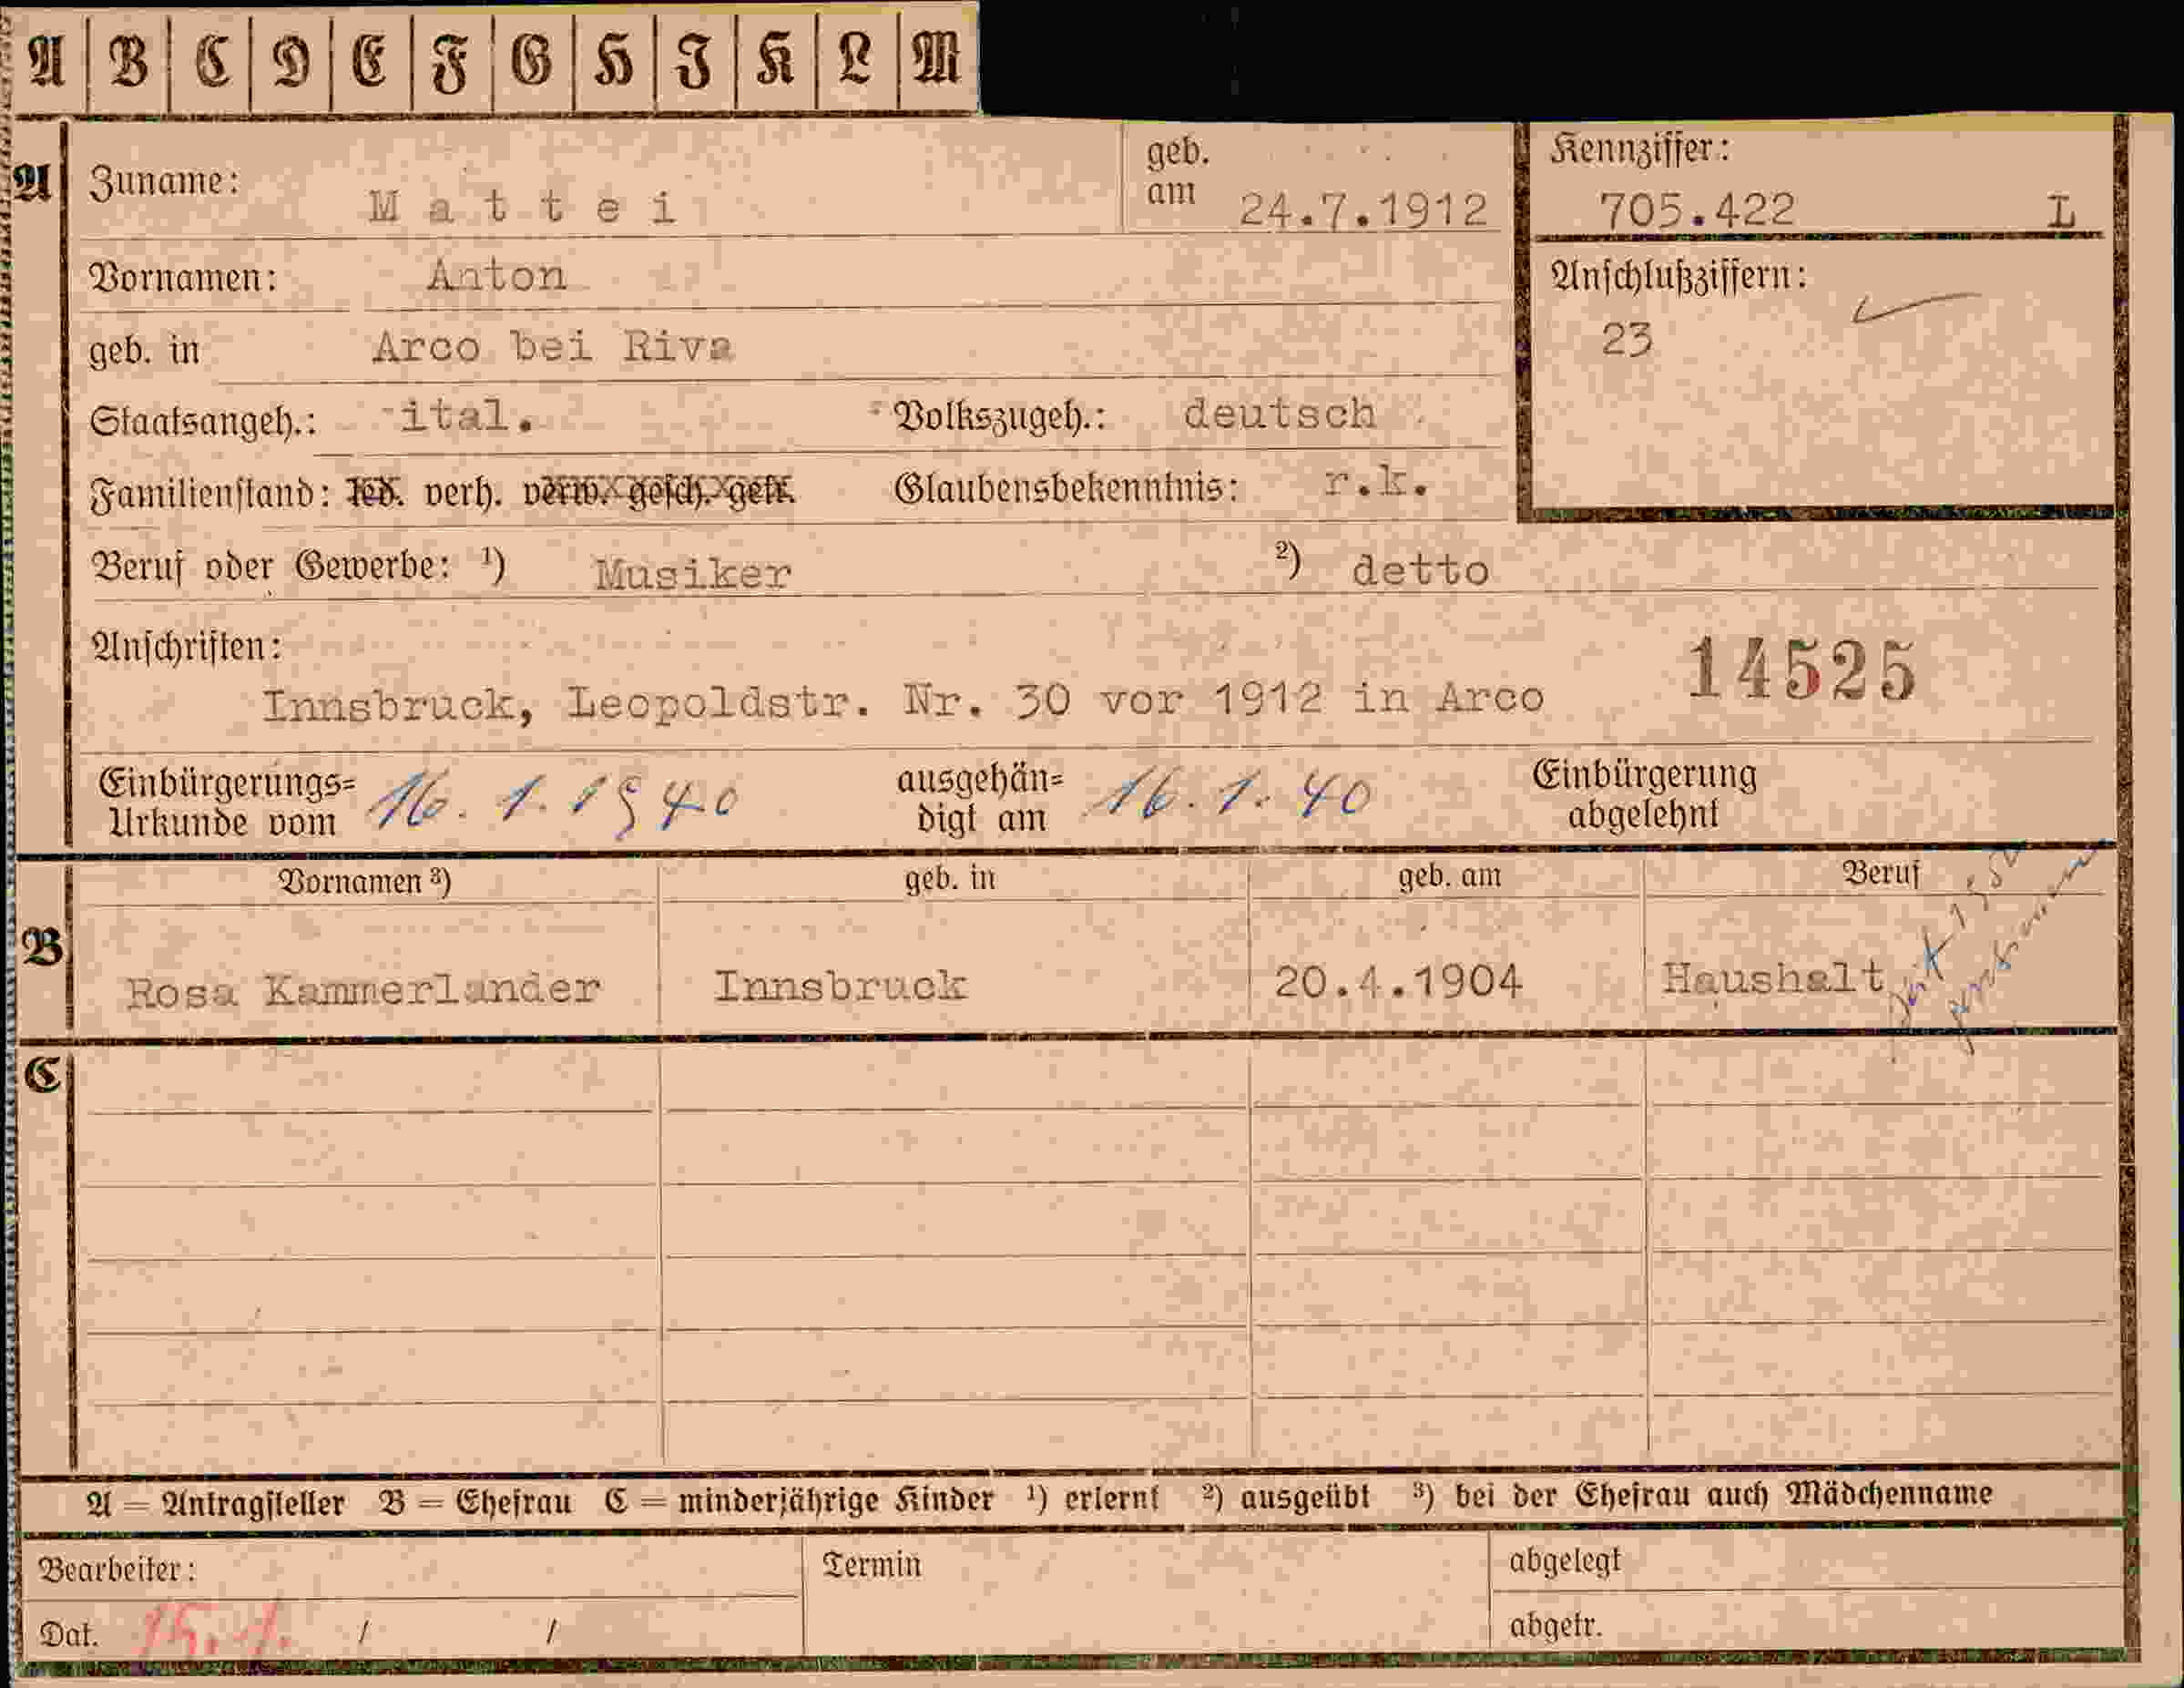 A B C D E F G H I K L M
A Zuname: Mattei geb. am 24.7.1912 Kennziffer: 705.422 L
Vornamen: Anton Anschlußziffern:
23
geb. in Arco bei Riva
Staatsangeh.: ital. Volkszugeh.: deutsch
Familienstand: led. verh. verw. gesch. getr. Glaubensbekenntnis: r.k.
Beruf oder Gewerbe: ¹) Musiker ²) detto
Anschriften: 14525
Innsbruck, Leopoldstr. Nr. 30 vor 1912 in Arco
Einbürgerungs= Urkunde vom 16.1.1940 ausgehän= digt am 16.1.40 Einbürgerung abgelehnt
Vornamen ³) geb. in geb. am Beruf
B Rosa Kammerlander Innsbruck 20.4.1904 Haushalt
C
A = Antragsteller B = Ehefrau C = minderjährige Kinder ¹) erlernt ²) ausgeübt ³) bei der Ehefrau auch Mädchenname
Bearbeiter: Termin abgelegt
Dat. 15.1. / / abgetr.